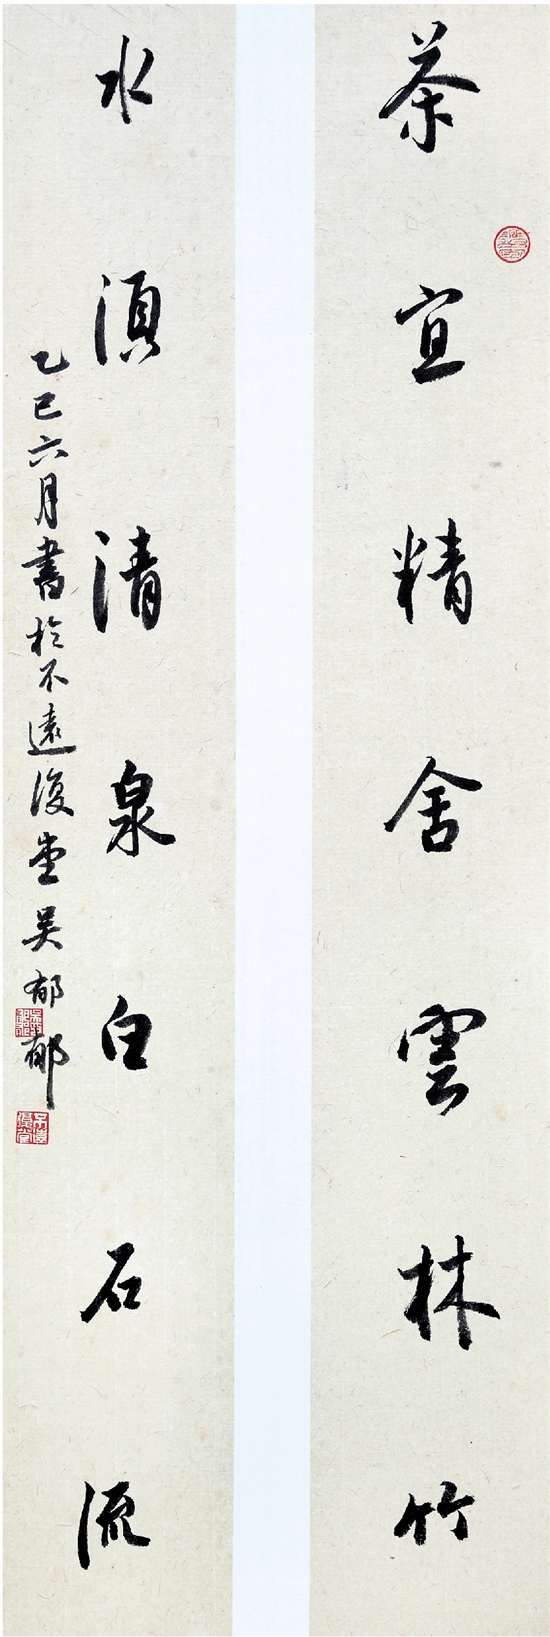 茶宜精舍雲林竹
水須清泉白石流
乙巳六月書於不遠復堂吳郁郁